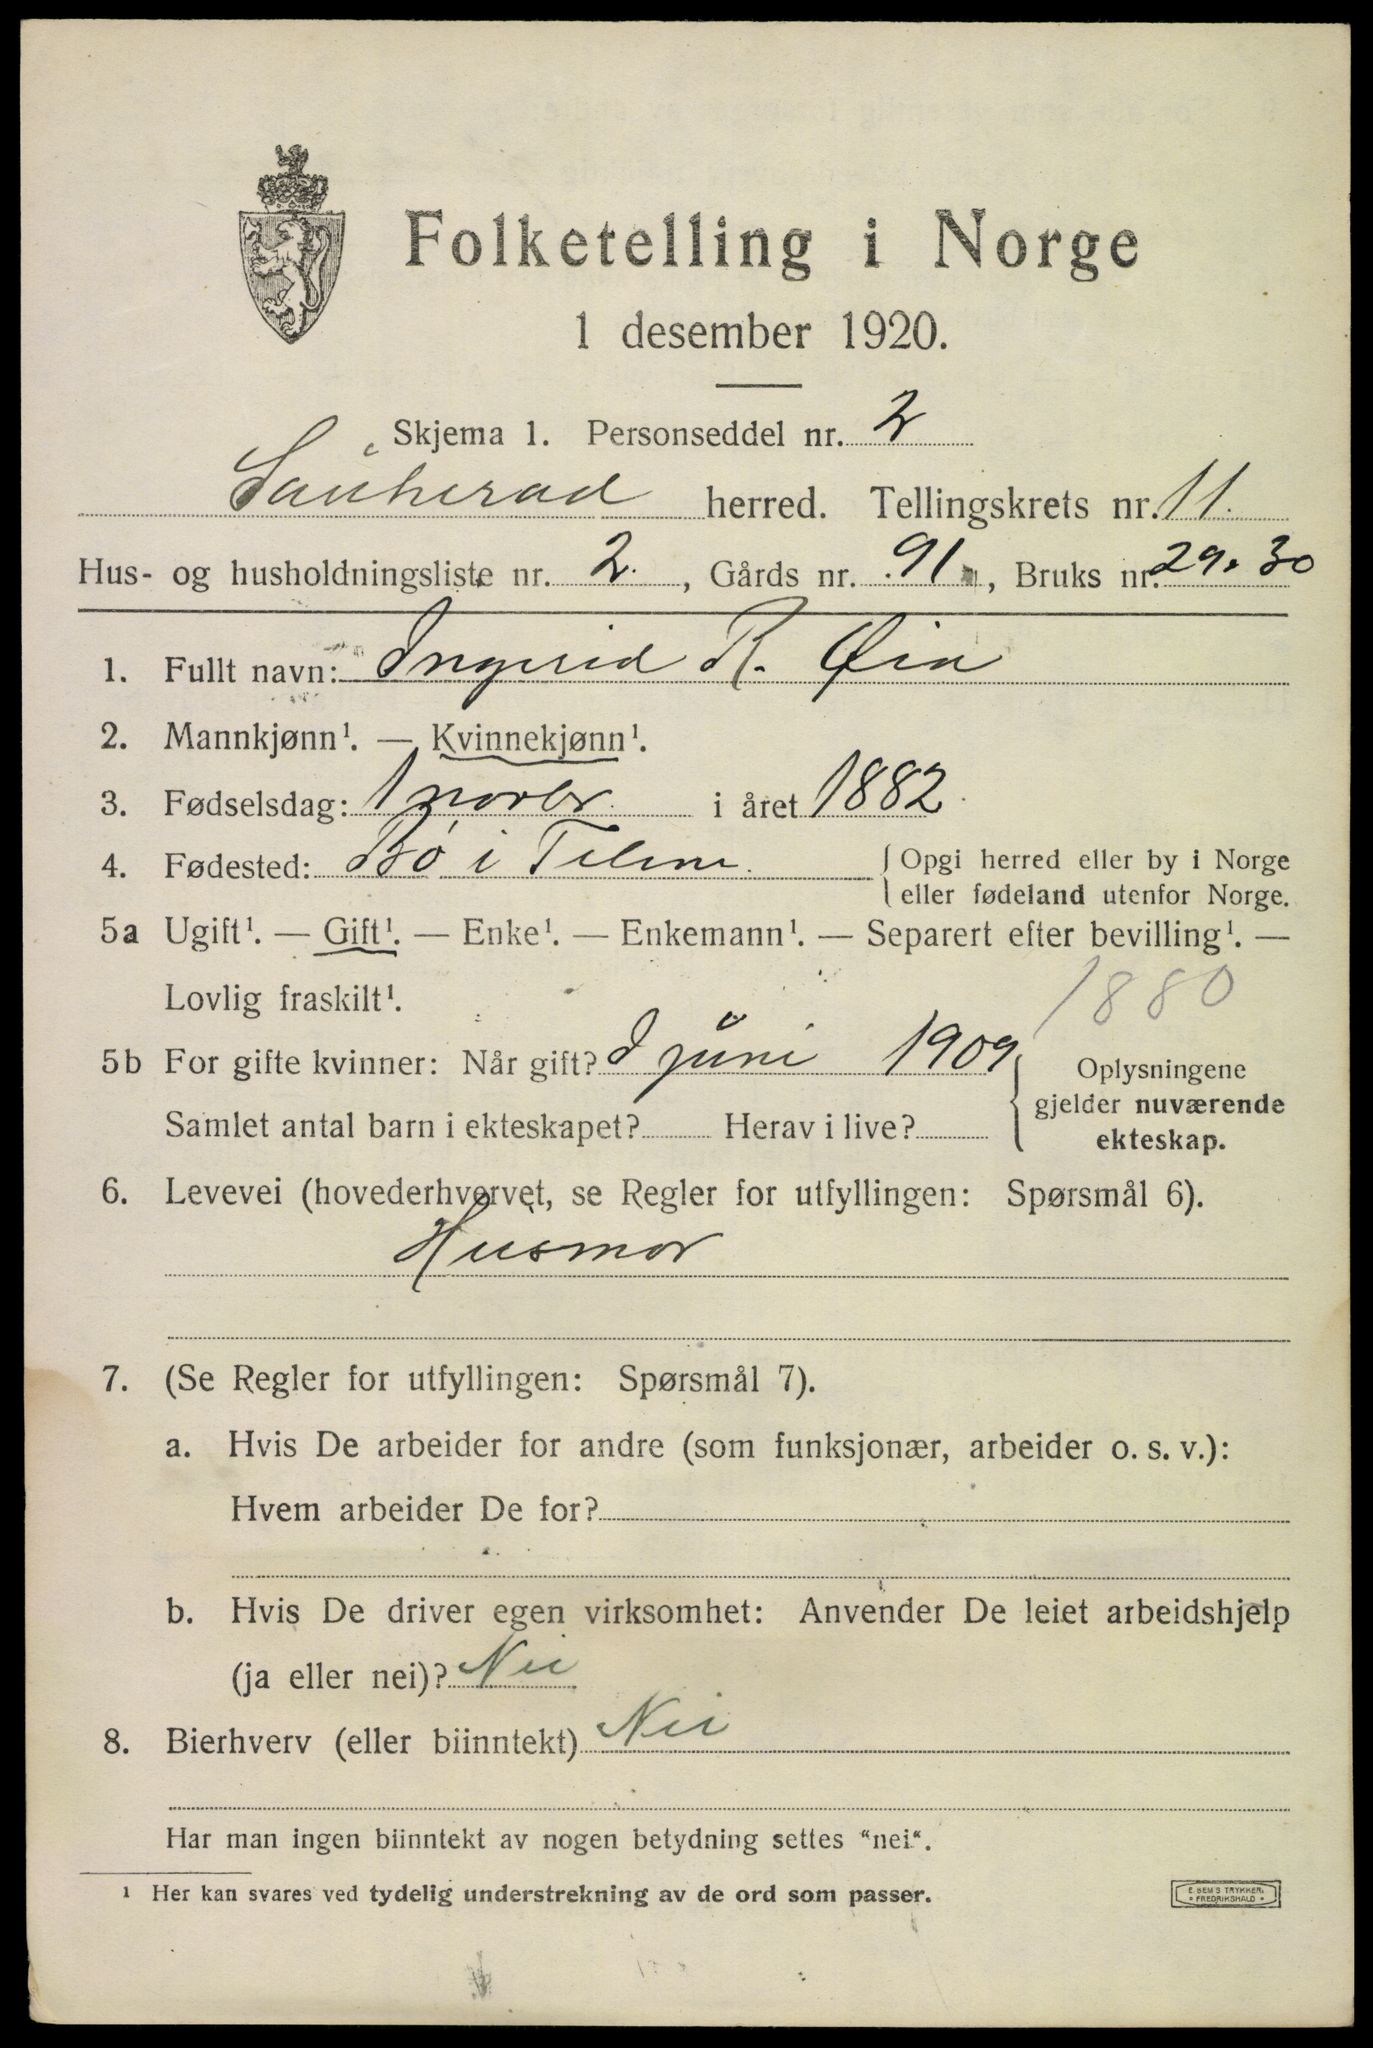 Folketelling i Norge
1 desember 1920.
Skjema 1. Personseddel nr. 2
Sauherad herred. Tellingskrets nr. 11.
Hus- og husholdningsliste nr. 2. , Gårds nr. 91 , Bruks nr. 29. 30
1. Fullt navn: Ingerid R. Øia
2. Mannkjønn¹. — Kvinnekjønn¹.
3. Fødselsdag: 1 novbr. i året 1882
4. Fødested: Bø i Telem.
{ Opgi herred eller by i Norge
eller fødeland utenfor Norge.
5a Ugift¹. — Gift¹. — Enke¹. — Enkemann¹. — Separert efter bevilling¹. —
Lovlig fraskilt¹.
1880
5b For gifte kvinner: Når gift? I juni 1909
Samlet antal barn i ekteskapet? Herav i live?
{ Oplysningene
gjelder nuværende
ekteskap.
6. Levevei (hovederhvervet, se Regler for utfyllingen: Spørsmål 6).
Husmor
7. (Se Regler for utfyllingen: Spørsmål 7).
a. Hvis De arbeider for andre (som funksjonær, arbeider o. s. v.):
Hvem arbeider De for?
b. Hvis De driver egen virksomhet: Anvender De leiet arbeidshjelp
(ja eller nei)? Nei
8. Bierhverv (eller biinntekt) Nei
Har man ingen biinntekt av nogen betydning settes “nei“.
¹ Her kan svares ved tydelig understrekning av de ord som passer.
E. SEM'S TRYKKERI
• FREDRIKSHALD •